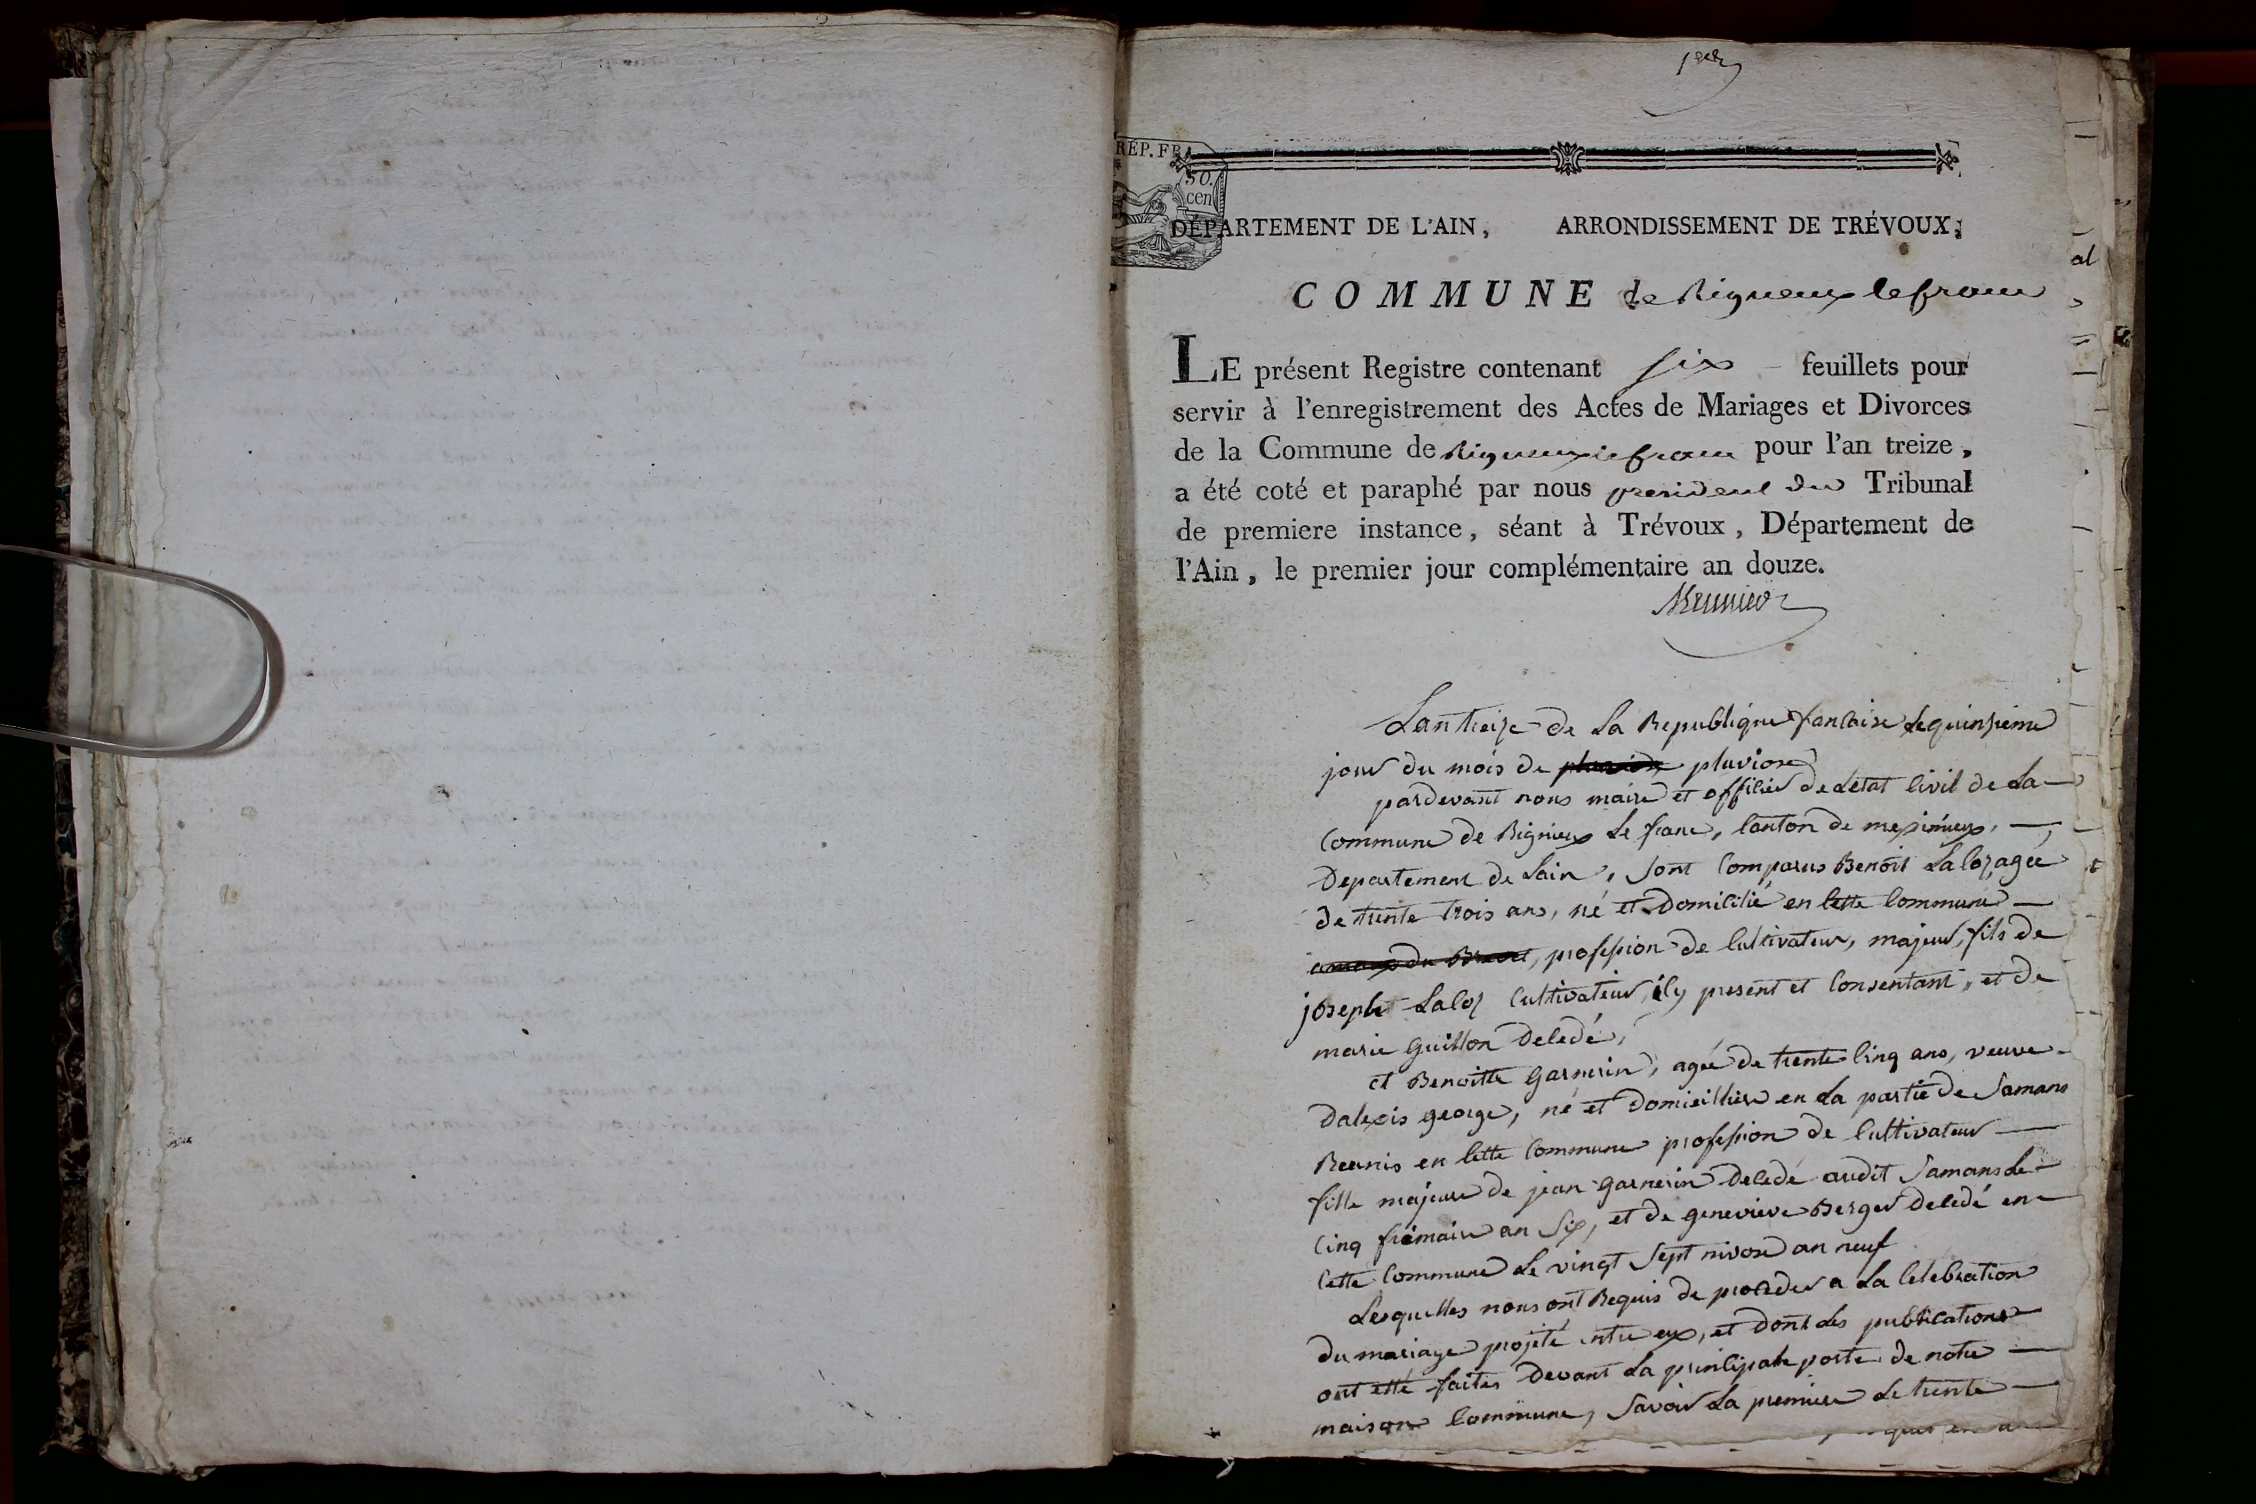 1er
RÉP. FRA
50.
cen
DÉPARTEMENT DE L'AIN, ARRONDISSEMENT DE TRÉVOUX,
COMMUNE de Rigneux le franc
LE présent Registre contenant six feuillets pour
servir à l'enregistrement des Actes de Mariages et Divorces
de la Commune de Rigneux le franc pour l'an treize,
a été coté et paraphé par nous president du Tribunal
de premiere instance, séant à Trévoux, Département de
l'Ain, le premier jour complémentaire an douze.
Meunier
Lan treize de La Republique fancaise Le quinzieme
jour du mois de pluviose
pardevant nous maire et officier de Létat Civil de La
Commune de Rignieux Le franc, Canton de meximieux,
Departement de Lain, sont Comparus Benoit Laloz, agée
de trente trois ans, né et Domicilié en Cette Commune
profession de Cultivateur, majeur, fils de
joseph Laloz Cultivateur, icy present et Consentant, et de
marie Guillon Delede,
et Benoitte Garnerin, agée de trente Cinq ans, veuve
Dalexis george, né et Domicilliée en La partie de Samans
Reunis en Cette Commune profession de Cultivateur
fille majeure de jean Garnerin Delede audit Samans Le
Cinq frémaire an Six, et de genevieve Berger Deledé en
Cette Commune Le vingt Sept nivose an neuf
Lesquelles nous ont Requis de proceder a La Celebration
du mariage projeté entre eux, et dont Les publications
ont etté faites Devant La principale porte de notre
maison Commune, Savoir La premiere Le trente